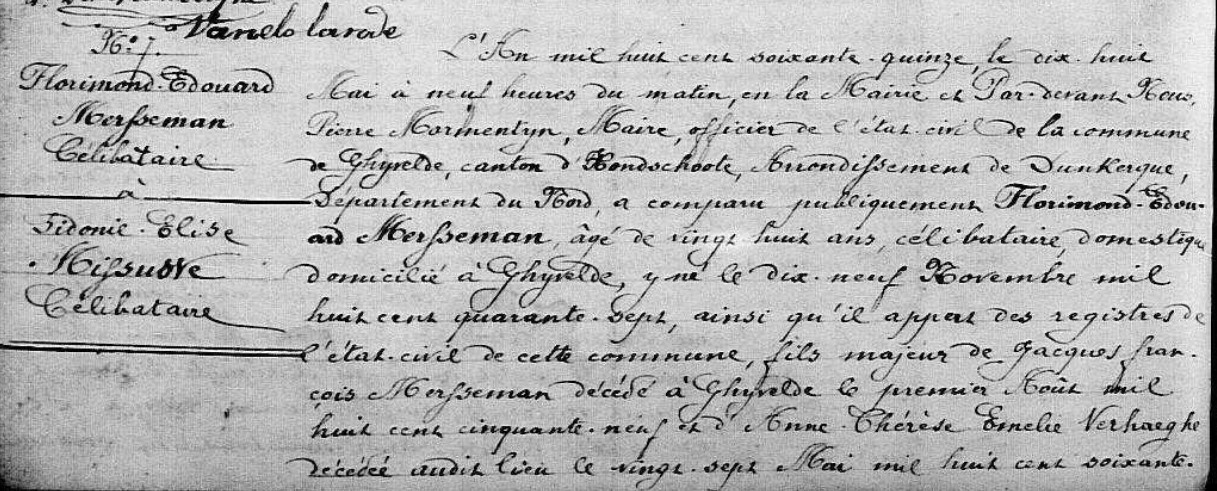 Vandelarode
N.° 7.
Florimond-Edouard
Mersseman
Célibataire
à
Sidonie-Elise
Missuwe
Célibataire
L'An mil huit cent soixante-quinze, le dix-huit
Mai à neuf heures du matin, en la Mairie et Par-devant Nous,
Pierre Mormentyn, Maire, officier de l'état-civil de la commune
de Ghyvelde, canton d'Hondschoote, Arrondissement de Dunkerque,
Département du Nord, a comparu publiquement Florimond-Edou-
ard Mersseman, âgé de vingt huit ans, célibataire, domestique
domicilié à Ghyvelde, y né le dix-neuf Novembre mil
huit cent quarante-sept, ainsi qu'il appert des registres de
l'état-civil de cette commune, fils majeur de Jacques fran-
çois Mersseman décédé à Ghyvelde le premier Août mil
huit cent cinquante-neuf et d'Anne-Thérèse Emelie Verhaeghe
décédée audit lieu le vingt-sept Mai mil huit cent soixante.